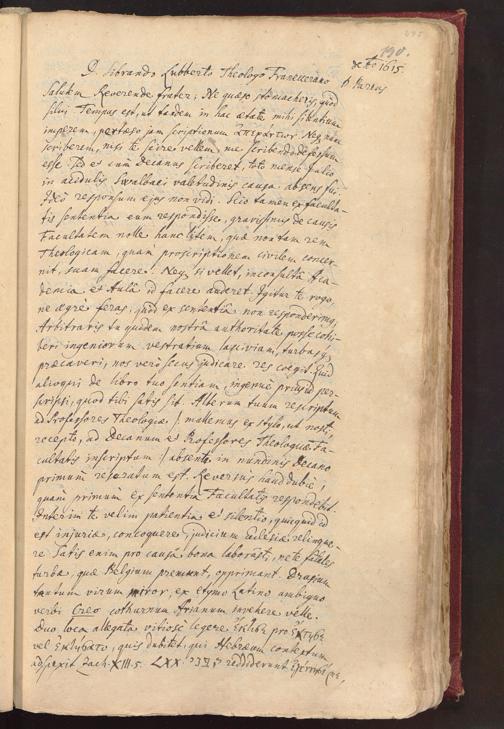 190.
1615.
D. Sibrando Lubberto Theologo Franeccerano
Salutem Reverende frater, Ne quæso stomacheris, quod
silui Tempus est, ut tandem in hac ætate mihi silentium
imperem, pertæso jam scriptionum ἀπεράντων. Neq; nunc
scriberem, nisi te scire vellem me scribendo defessum
esse. Id et cum Decanus scriberet, toto mense Julio
in acidulis Swalbaci valetudinis causa absens fui,
Ideo responsum ejus non vidi. Scio tamen ex faculta-
tis sententia eum respondisse, gravissimis de causis
Facultatem nolle hanc litem, quæ non tam rem
Theologicam, quam proscriptionem civilem concer-
nit, suam facere. Neq; si vellet, inconsulta Aca-
demia et Aula id facere auderet. Igitur te rogo,
ne ægre feras, quod ex sententia non responderimus,
Arbitraris tu quidem nostra authoritate posse cohi-
beri ingeniorum vestratium lasciviam, turbasq;
præcaveri, nos vero secus judicare res coegit. Quid
alioqui de libro tuo sentiam, ingenue prius per-
scripsi, quod tibi satis sit. Alterum tuum rescriptum
ad Professores Theologiæ / mallemus ex stylo, ut nosti,
recepto, ad Decanum et Professores Theologicæ Fa-
cultatis inscriptum / absente in nundinis Decano
primum reseratum est. Reversus haud dubie,
quam primum ex sententia Facultatis respondebit.
Interim te velim patientia et silentio, quicquid id
est injuriæ, concoquere, judicium Ecclesiæ relinque-
re Satis enim pro causa bona laborasti, ne te fatales
turbæ, quæ Belgium premunt, opprimant. Drusium
tantum virum miror, ex etymo Latino ambiguo
verbi Creo cothurnum Arianum invehere velle.
Duo loca allegata vitiose legere ἔκτισε pro ἐκτήσε
vel ἐκτήσατο, quis dubitet, qui Hebræum contextum
adspexit Zach. XIII. 5. LXX. הקנני reddiderunt